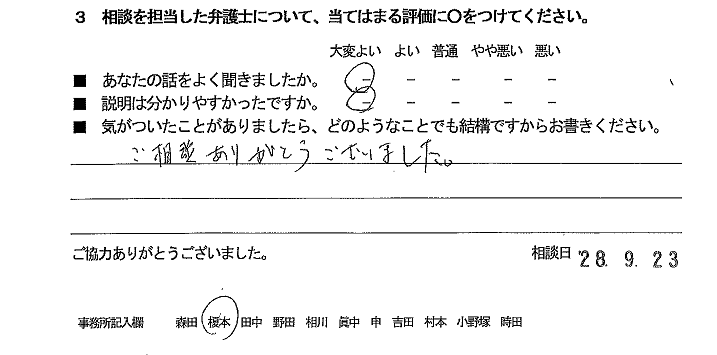 3 相談を担当した弁護士について、当てはまる評価に〇をつけてください。
大変よい よい 普通 やや悪い 悪い
■ あなたの話をよく聞きましたか。 － － － － －
■ 説明は分かりやすかったですか。 － － － － －
■ 気がついたことがありましたら、どのようなことでも結構ですからお書きください。
ご相談ありがとうございました。
ご協力ありがとうございました。 相談日 '28. 9. 23
事務所記入欄 森田 榎本 田中 野田 相川 眞中 申 吉田 村本 小野塚 時田